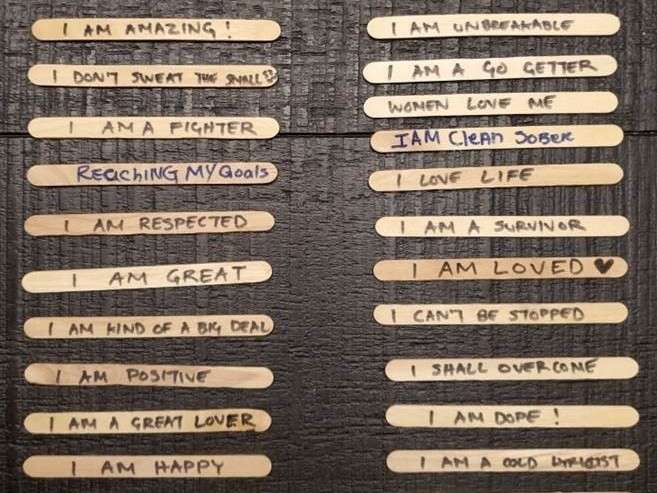 I AM AMAZING !
I DON'T SWEAT THE SMALL
I AM A FIGHTER
REACHING MY GOALS
I AM RESPECTED
I AM GREAT
I AM KIND OF A BIG DEAL
I AM POSITIVE
I AM A GREAT LOVER
I AM HAPPY
I AM UNBREAKABLE
I AM A GO GETTER
WOMEN LOVE ME
I AM Clean Sober
I LOVE LIFE
I AM A SURVIVOR
I AM LOVED ♥
I CAN'T BE STOPPED
I SHALL OVERCOME
I AM DOPE !
I AM A COLD LYRICIST